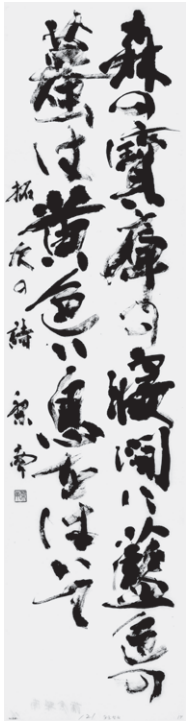 森の寶庫の寝間に藍色の
蟇は黄色い息をはいて
拓次の詩